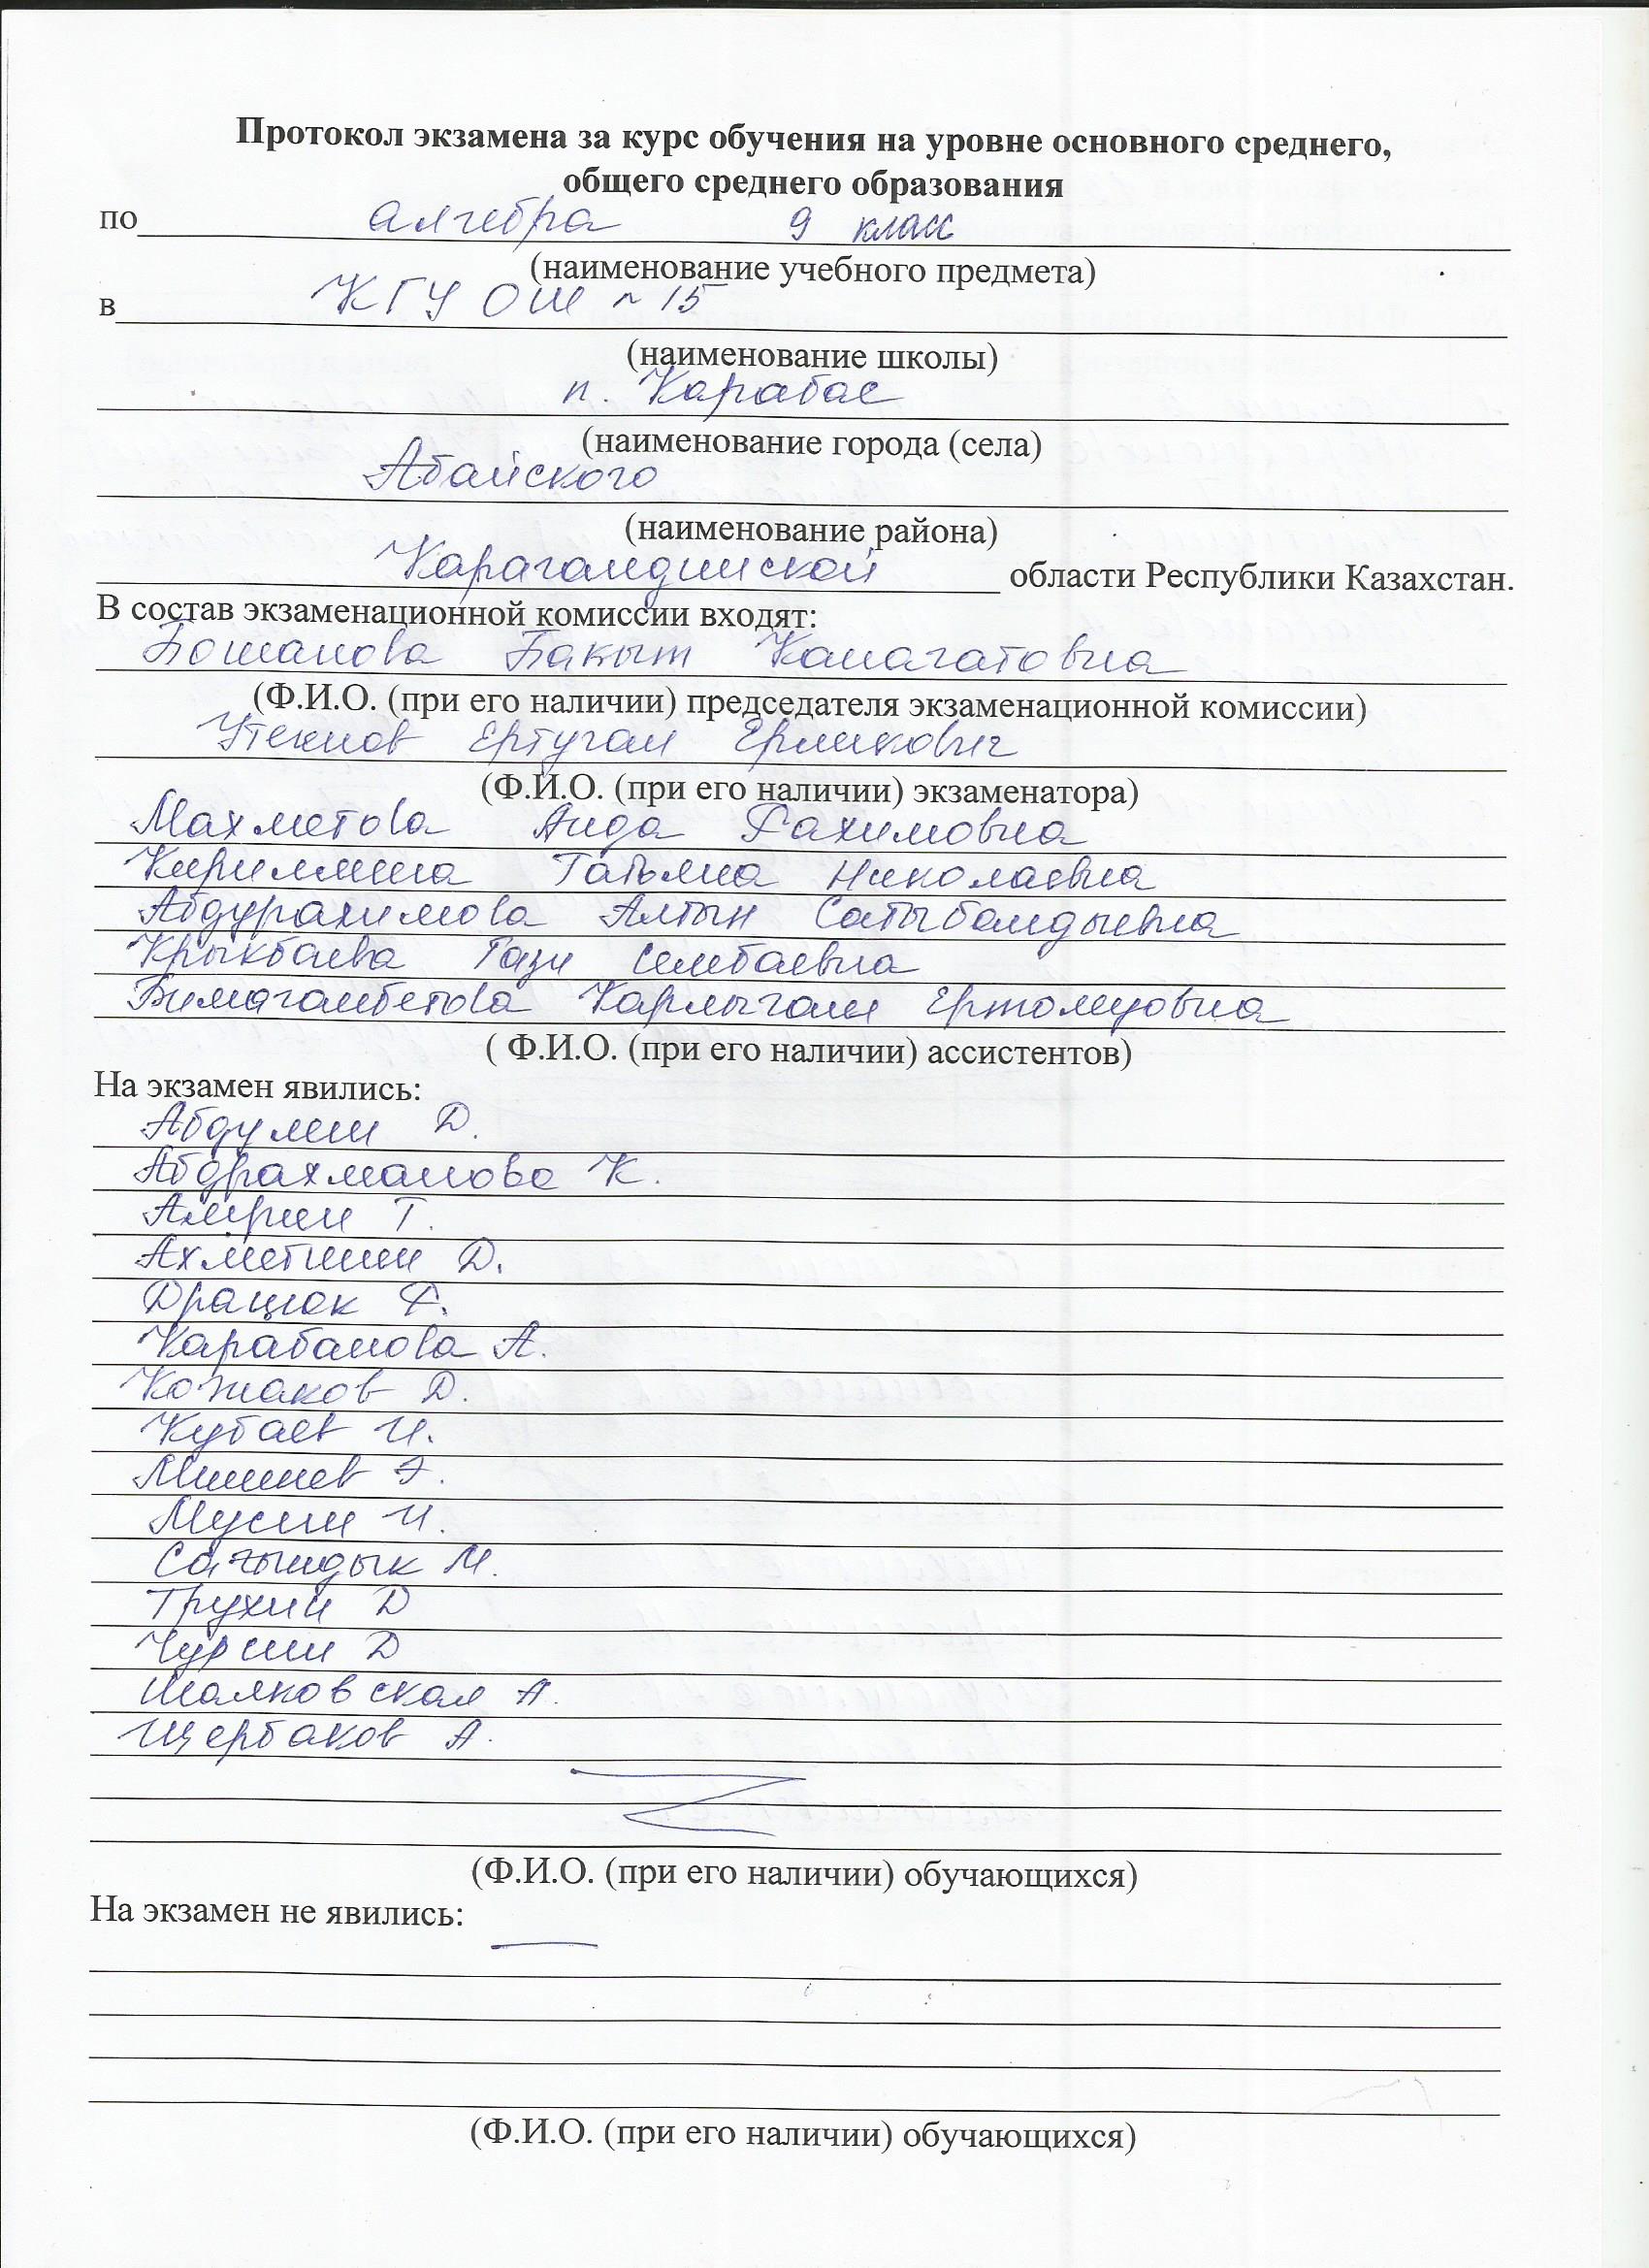 Протокол экзамена за курс обучения на уровне основного среднего,
общего среднего образования
по алгебра 9 класс
(наименование учебного предмета)
в КГУ ОШ № 15
(наименование школы)
п. Карабас
(наименование города (села)
Абайского
(наименование района)
Карагандинской области Республики Казахстан.
В состав экзаменационной комиссии входят:
Бошанова Бакыт Канагатовна
(Ф.И.О. (при его наличии) председателя экзаменационной комиссии)
Утекнов Ертуган Ерликович
(Ф.И.О. (при его наличии) экзаменатора)
Махметова Аида Рахимовна
Кириллина Татьяна Николаевна
Абдурахимова Алтын Сатыбалдыевна
Крыкбаева Гази Сембаевна
Бимагамбетова Карлыгаш
( Ф.И.О. (при его наличии) ассистентов)
На экзамен явились:
Абдулин Д.
Абдрахманова К.
Амрин Т.
Ахметшин Д.
Драцюк Р.
Карабанова А.
Кожаков Д.
Кубаев И.
Мишнев Э.
Мусин И.
Сагындык М.
Трухин Д
Чурсин Д
Шалковская А.
Щербаков А.
(Ф.И.О. (при его наличии) обучающихся)
На экзамен не явились:
(Ф.И.О. (при его наличии) обучающихся)